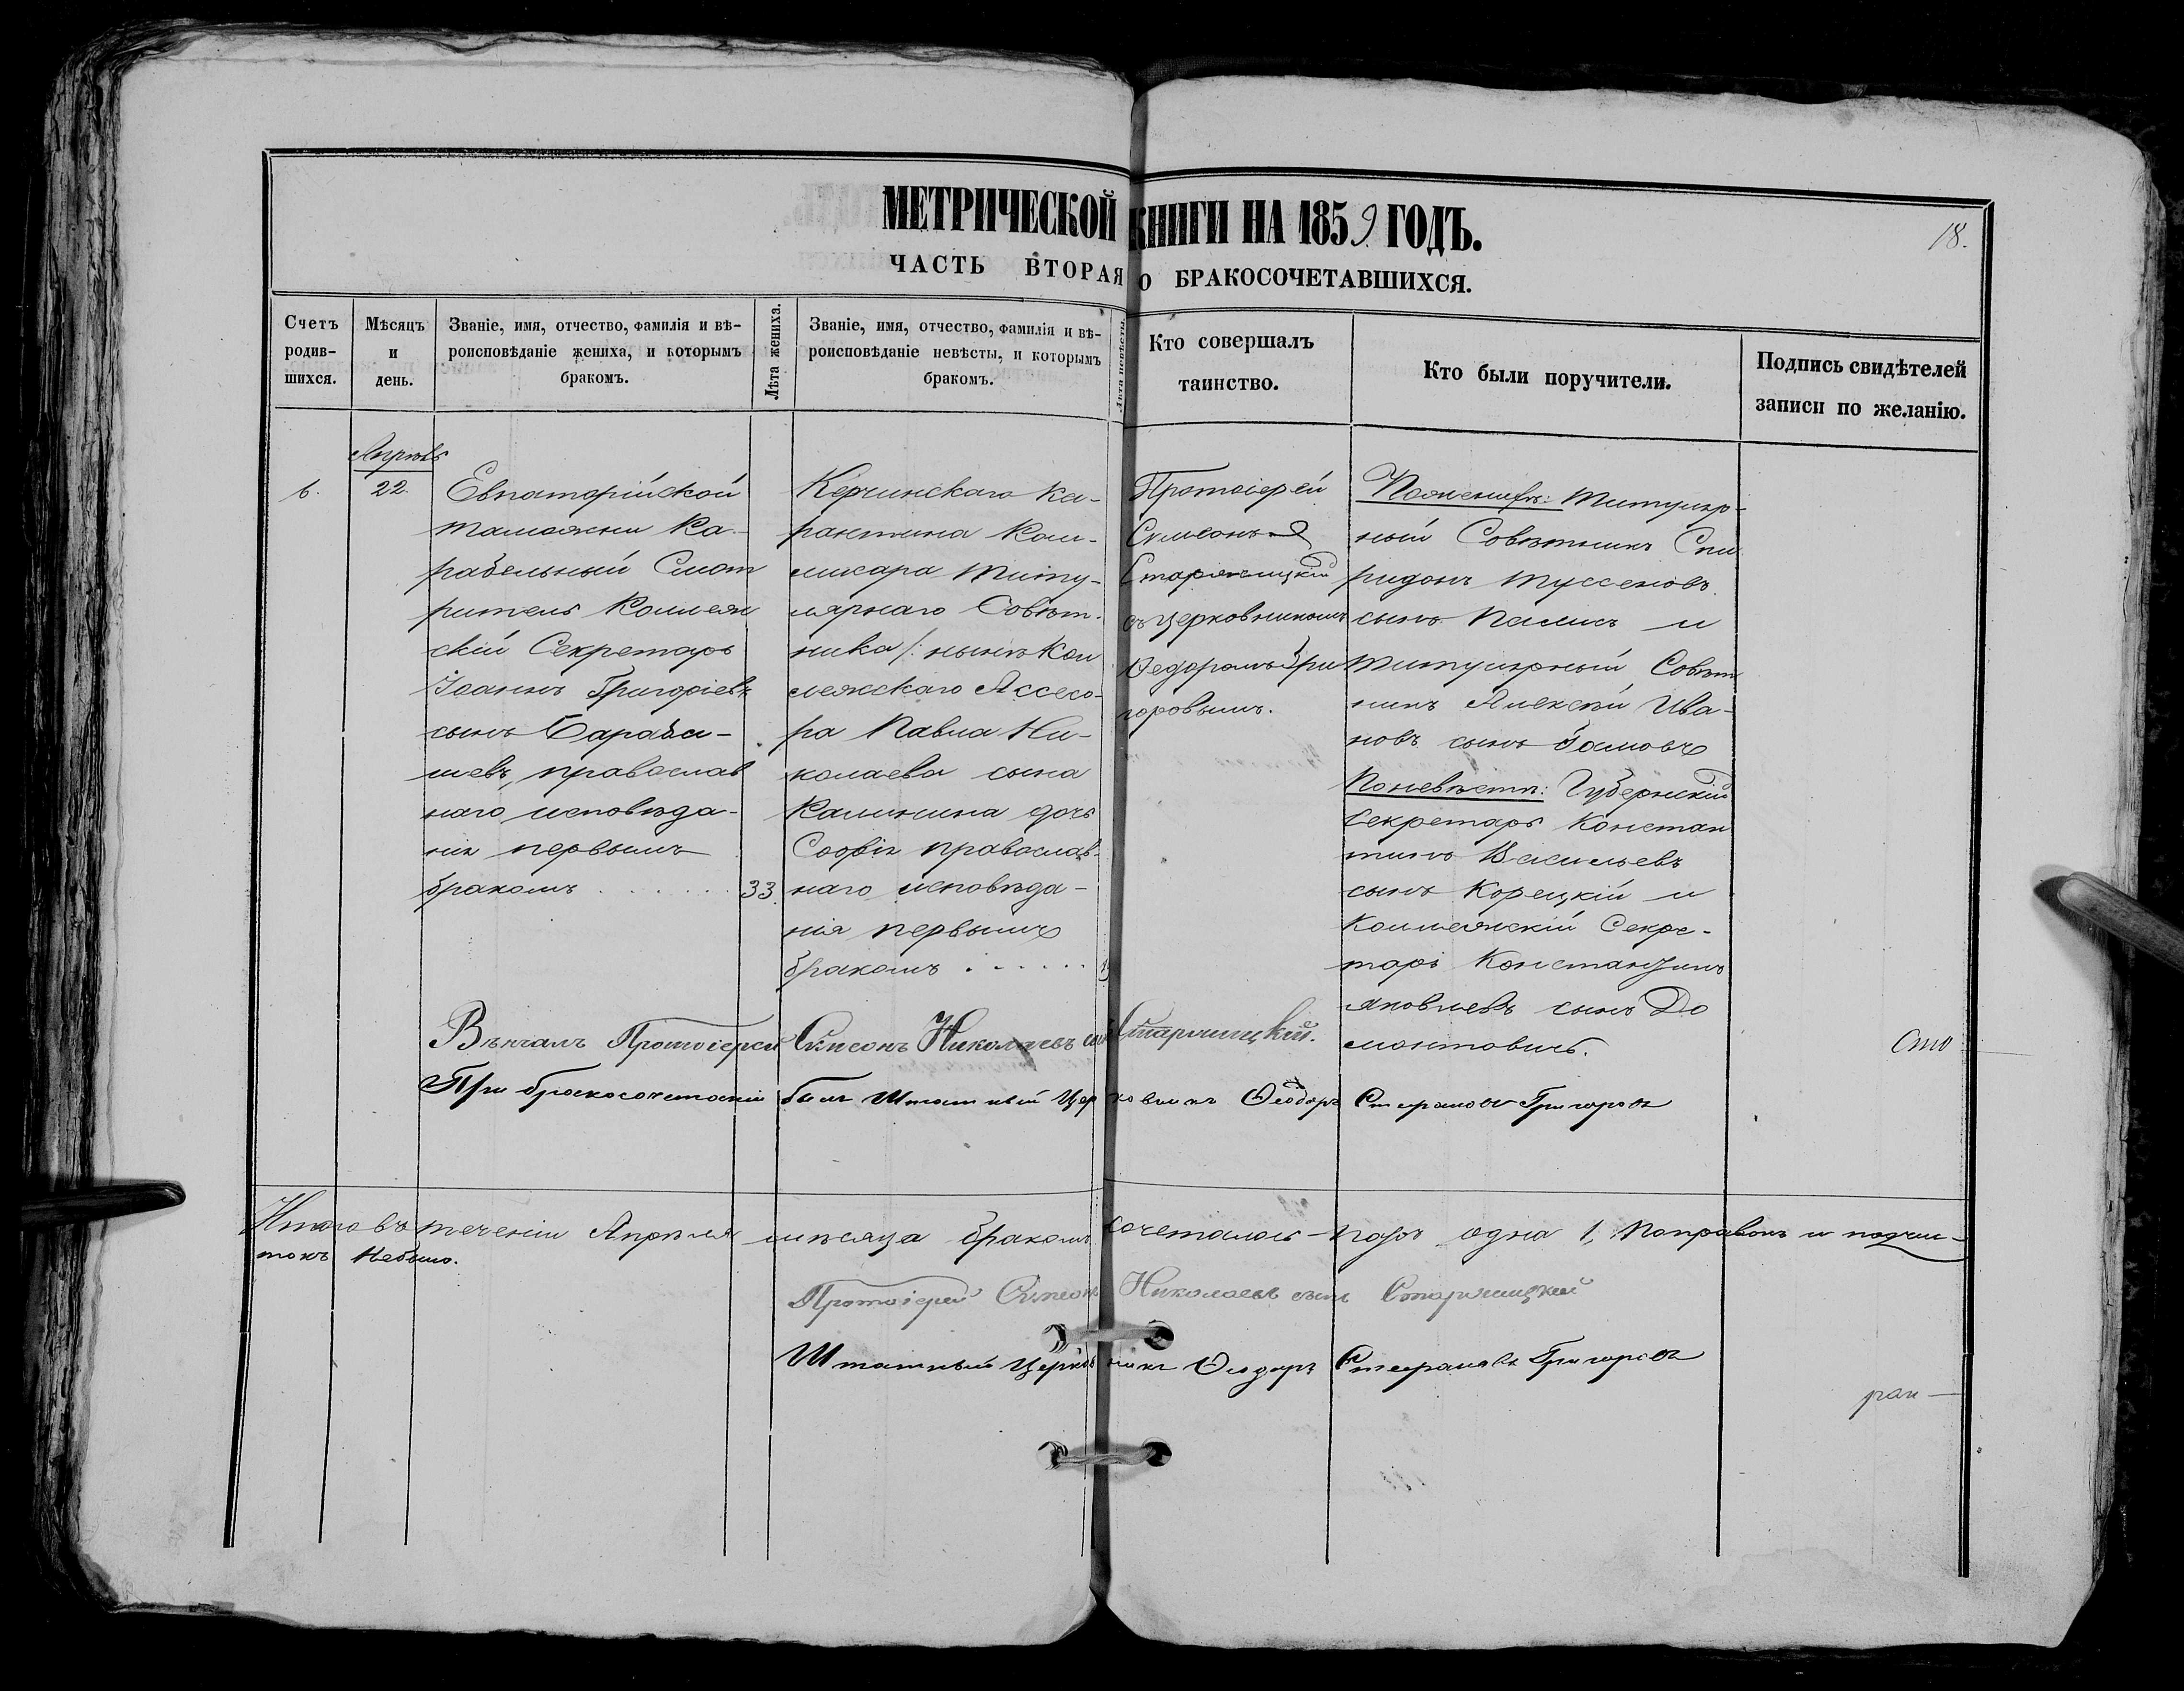 МЕТРИЧЕСКОЙ КНИГИ НА 1859 ГОДЪ.
18.
ЧАСТЬ ВТОРАЯ О БРАКОСОЧЕТАВШИХСЯ.
Счетъ
родив-
шихся.
Мѣсяцъ
и
день.
Званіе, имя, отчество, фамилія и вѣ-
роисповѣданіе жениха, и которымъ
бракомъ.
Лѣта жениха.
Званіе, имя, отчество, фамилія и вѣ-
роисповѣданіе невѣсты, и которымъ
бракомъ.
Кто совершалъ
таинство.
Кто были поручители.
Подпись свидѣтелей
записи по желанію.
6.
Апрѣль
22.
Евпаторійской
таможни Ка-
рабельный Смот
ритель Коллеж
скій Секретарь
Іоаннъ Григоріевъ
сынъ
православ
наго исповѣда-
нія первымъ
бракомъ . . . . . . 33.
Керчинскаго ка-
рантина Ком-
мисара Титу-
лярнаго Совѣт-
ника /: нынѣ Кол
лежскаго Ассесо-
ра Павла Ни-
колаева сына
Калинина дочь
Софія православ-
наго исповѣда-
нія первымъ
бракомъ . . . . . .
Протоіерей
Сѵмеонъ
Старчицкій
съ церковникомъ
Ѳедоромъ Гри
горовымъ.
По женихѣ: Титуляр-
ный Совѣтникъ Спи
ридонъ
сынъ и
Титулярный Совѣт
никъ Алексѣй Ива-
новъ сынъ
По невѣстѣ: Губернскій
Секретарь Констан
тинъ Васильевъ
сынъ Корецкій и
Коллежскій Секре-
тарь Константинъ
Яковлевъ сынъ До
монтовичъ.
Вѣнчалъ Протоіерей Сѵмеонъ Николаевъ сынъ Старчицкій.
При бракосочетаніи былъ Штатный Церковникъ Ѳеодоръ Стефановъ Григоровъ
Сто
Итого въ теченіи Апрѣля мѣсяца бракомъ сочеталось паръ одна 1, Поправокъ и подчис-
токъ небыло.
Протоіерей Сѵмеонъ Николаевъ сынъ Старчицкій
Штатный Церковникъ Ѳеодоръ Стефановъ Григоровъ
ран —